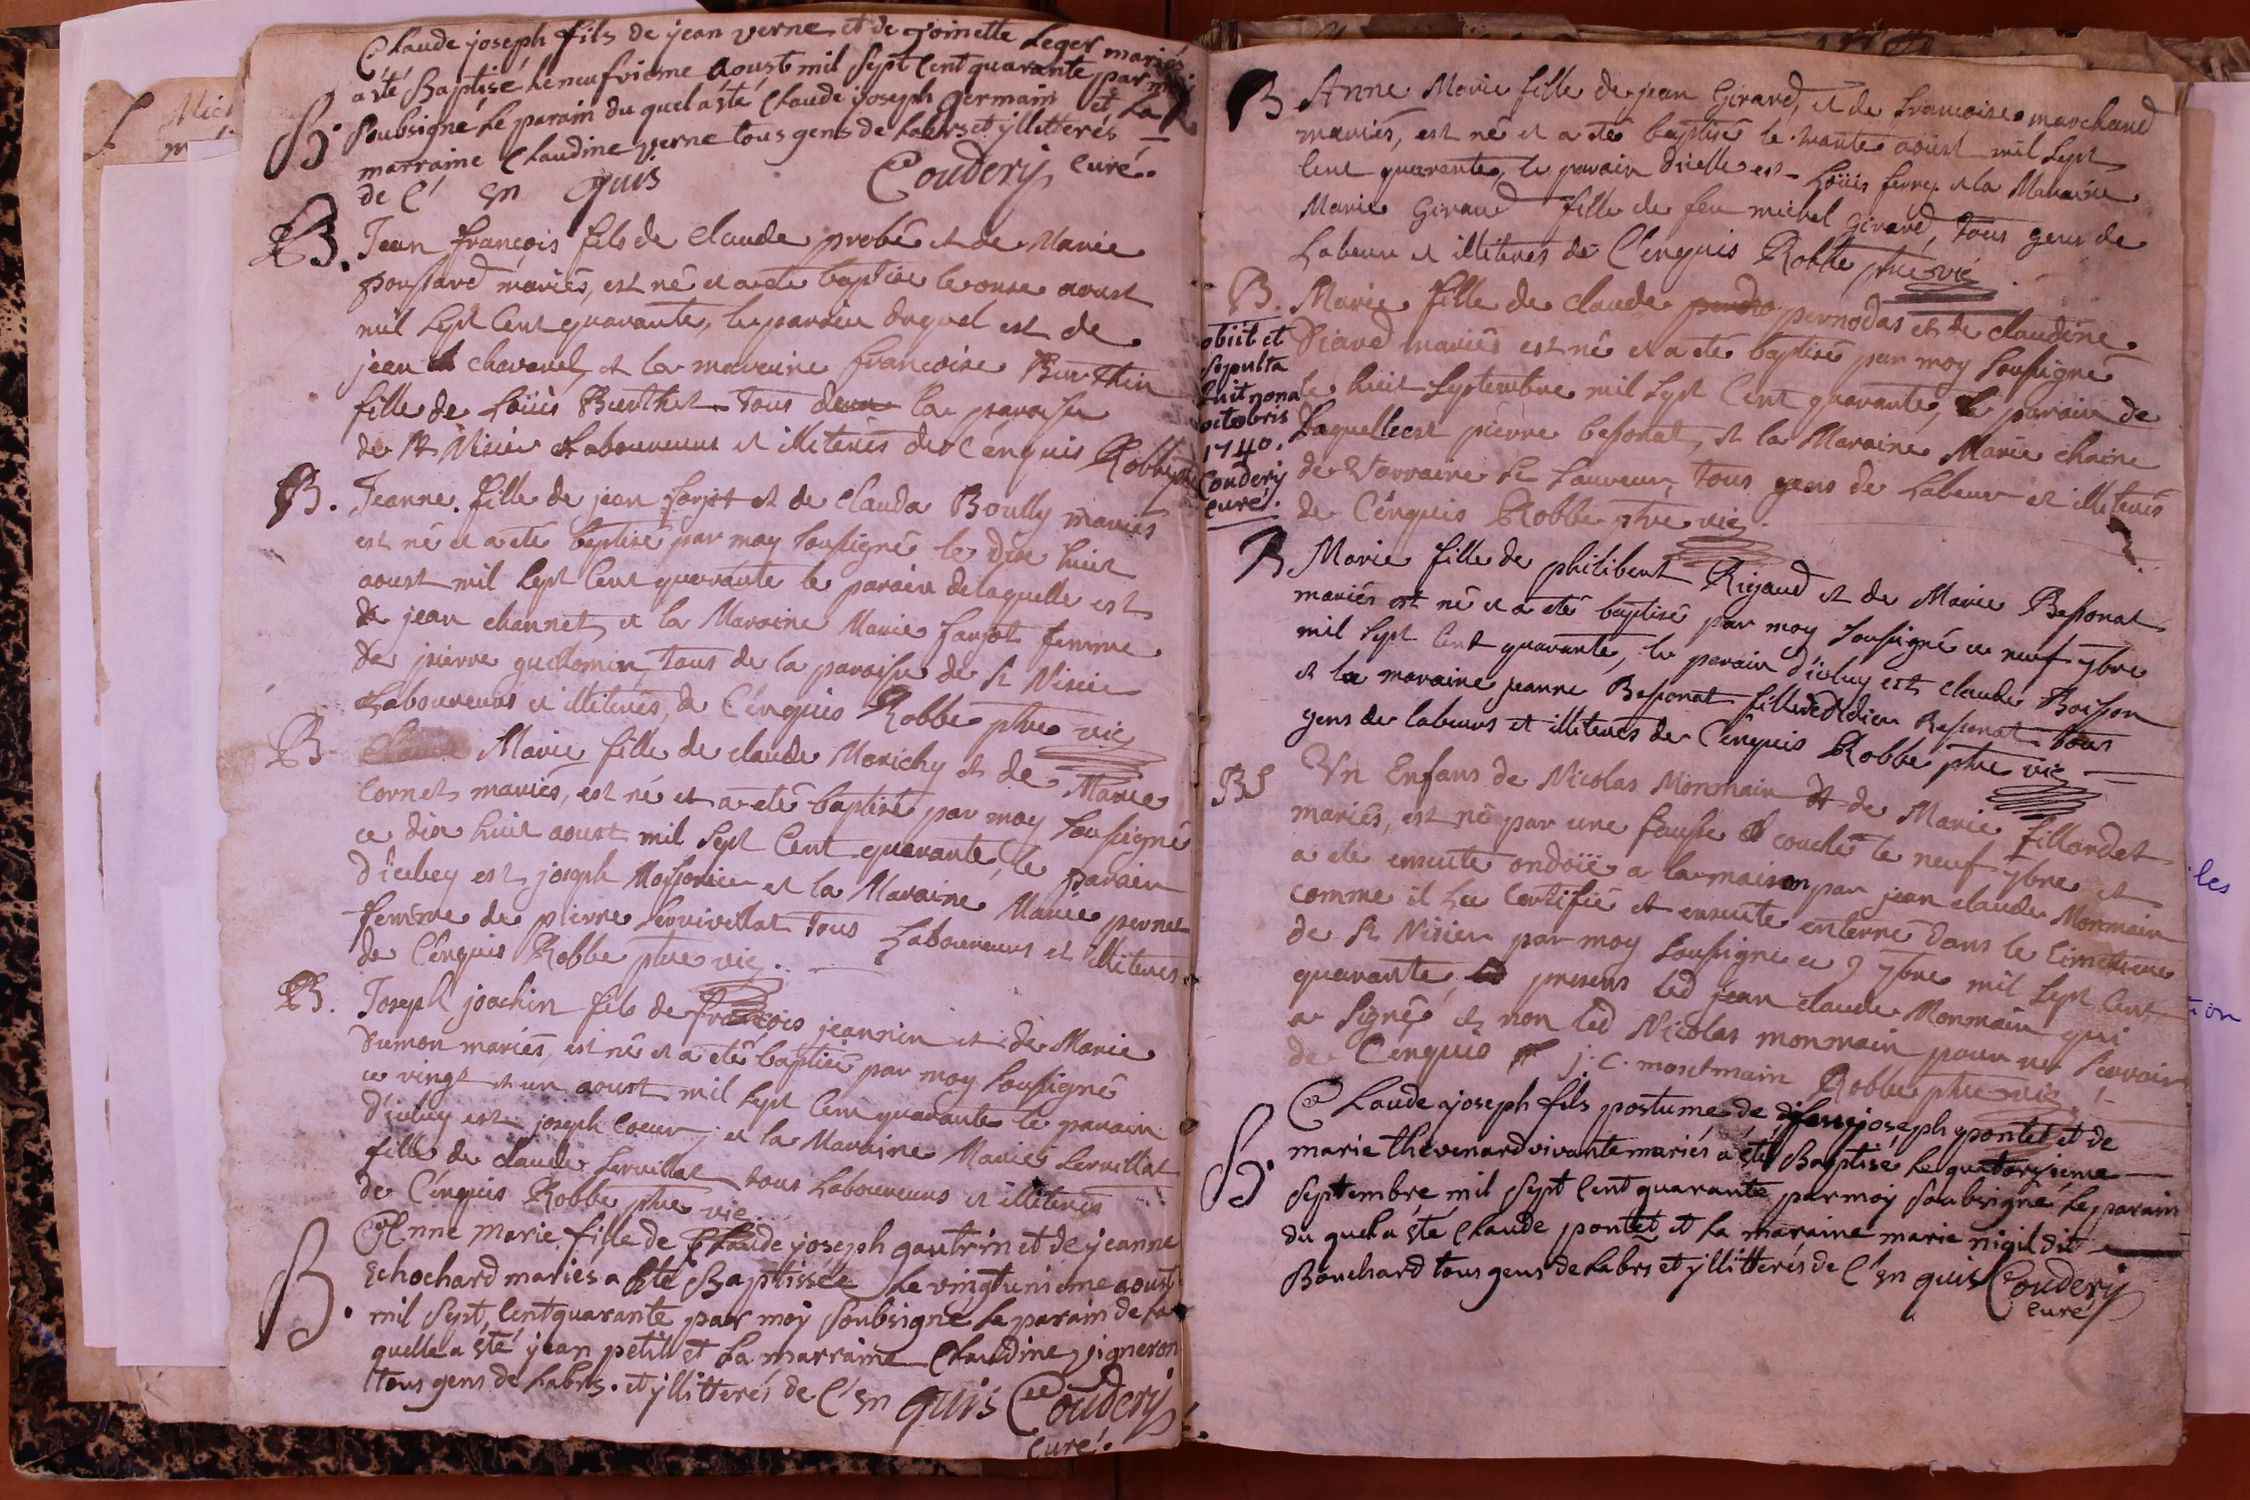 Claude joseph fils de jean verne et de toinette Leger mariés
a été Baptisé le neufvieme Aoust mil sept Cent quarante par moy
B. soubsigné le parain du quel a été Claude joseph germain et La
marraine Claudine verne tous gens de Labrs et yllitterés
de C' en quis Coudery Curé.
B. Jean françois fils de claude probé et de Marie
poussard mariés, est né et a eté baptisé le onse aoust
mil sept Cent quarante, le parain duquel est de
jean chavanel, et la maraine francoise Burthin
fille de Loüis Burthet tous deux la paroisse
de St Nisier Laboureurs et illiterés de Cenquis Robbe ptre
B. Jeanne fille de jean farjot et de Clauda Boully mariés
est né et a eté baptisé par moy soussigné le dix huit
aoust mil sept Cent quarante le parain delaquelle est
de jean channet, et la Maraine Marie farjot femme
de pierre guillomin, tous de la paroisse de St Nisier
Laboureurs et illiterés, de Cenquis Robbe ptre vic
B Marie fille de claude Morichy et de Marie
Cornet mariés, est né et a eté baptisé par moy soussigné
ce dix huit aoust mil sept Cent quarante, le parain
d'icelley est joseph et la Maraine Marie pernet
femme de pierre tous Laboureurs et illiterés
de Cenquis Robbe ptre vic.
B. Joseph joachin fils de françois jeannin et de Marie
Dumon mariés, est né et a eté baptisé par moy soussigné
ce vingt et un aoust mil sept Cent quarante le parain
d'iceluy est joseph Coeur, et la Maraine Marie Servillat
fille de claude Servillat tous Laboureurs et illiterés
de Cenquis Robbe ptre vic.
B. Anne Marie fille de Claude joseph gautrin et de jeanne
Echochard mariés a été Baptissée Le vingtunieme aoust
mil sept Cent quarante par moy soubsigné Le parain de la
quelle a été jean petit et La marraine Claudine vigneron
tous gens de Labrs. et yllitterés de C' en quis Coudery
Curé.
B Anne Marie fille de jean Girard, et de francoise marchand
mariés, est né et a eté baptisé le trante aoust mil sept
Cent quarante, le parain d'icelle est Loüis ferrey et la Maraine
Marie Giraud fille de feu michel Girard, tous gens de
Labeur et illiterés de Cenquis Robbe ptre vic
B. Marie fille de claude pernodas et de claudine
Diard mariés est né et a eté baptisé par moy soussigné
le huit septembre mil sept Cent quarante, le parain de
Laquelle est pierre besonat, et la Maraine Marie chaine
de Varraine St Sauveur, tous gens de Labeur et illiterés
de Cenquis Robbe ptre vic.
obiit et
sepulta
fuit nona
octobris
1740.
Coudery
curé.
B Marie fille de philibert Rigaud et de Marie Bessonat
mariés est né et a eté baptisé par moy soussigné ce neuf 7bre
mil sept Cent quarante, le parain d'iceluy est claude Boisson
et la maraine jeanne Bessonat fille de Didier Bessonat tous
gens de labeurs et illiterés de Cenquis Robbe ptre vic
BS Un Enfans de Nicolas Monmain et de Marie fillardet
mariés, est né par une fausse couche le neuf 7bre et
a eté ensuite ondoïé a la maison par jean claude Monmain
comme il La Certifié et ensuite enterré dans le Cimetiere
de St Nisier par moy soussigné ce 9 7bre mil sept Cent
quarante, presens led jean claude Monmain qui
a signé, et non led Nicolas monmain pour ne scavoir
de Cenquis j. c. montmain Robbe ptre vic
B. Claude joseph fils postume de joseph pontet et de
marie thevenard vivante mariés a été Baptisé Le quatorzieme
septembre mil sept Cent quarante par moy soubsigné Le parain
du quel a été Claude pontet et La maraine marie nigil dit
Bouchard tous gens de Labrs et yllitterés de C' en quis Coudery
Curé